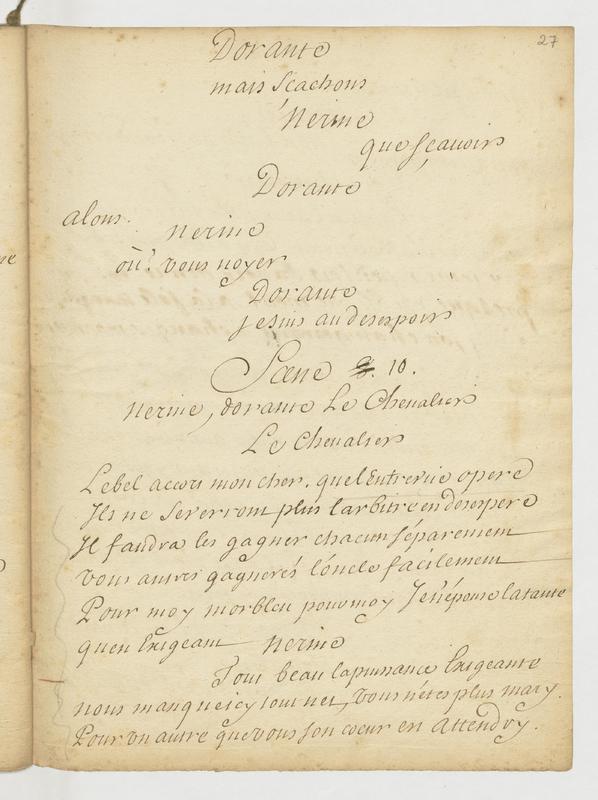 27
Dorante
mais scachons
Nerine
que sçauoirs
Dorante
alons.
nerine
où? vous noyer
Dorante
Je suis au desespoirs
Scene 9. 10.
nerine, dorante Le Cheualiers
Le Cheualiers
Lebel accors mon cher. quel Entreriie opere
Ils ne se verront plus l'arbitre en désespere
Il faudra les gagner chacun séparement
vous autres gagnerés l'oncle facilement
Pour moy morbleu pour moy Je n'épouse la tante
qu'en Exigeant nerine
Tout beau la puissance Exigeante
nous manque icy tout net, vous n'étes plus mary.
Pour vn autre que vous son coeur en attendry.